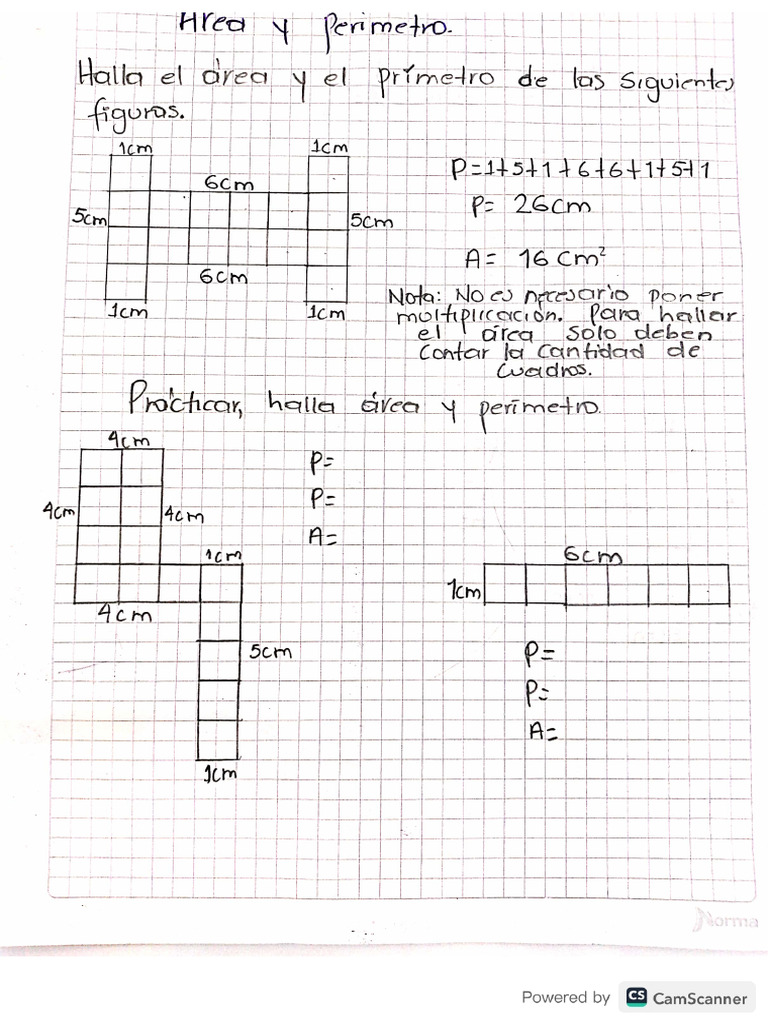 Área y Perimetro.
Halla el área y el prímetro de las siguientes
figuras.
1cm
1cm
6cm
5cm
5cm
6cm
1cm
1cm
P=1+5+1+6+6+1+5+1
P= 26cm
A= 16 cm²
Nota: No es necesario poner
multiplicación. Para hallar
el área solo deben
contar la cantidad de
cuadros.
Prácticar, halla área y perímetro.
4cm
4cm
4cm
1cm
4cm
5cm
1cm
P=
P=
A=
6cm
1cm
P=
P=
A=
Norma
Powered by CS CamScanner